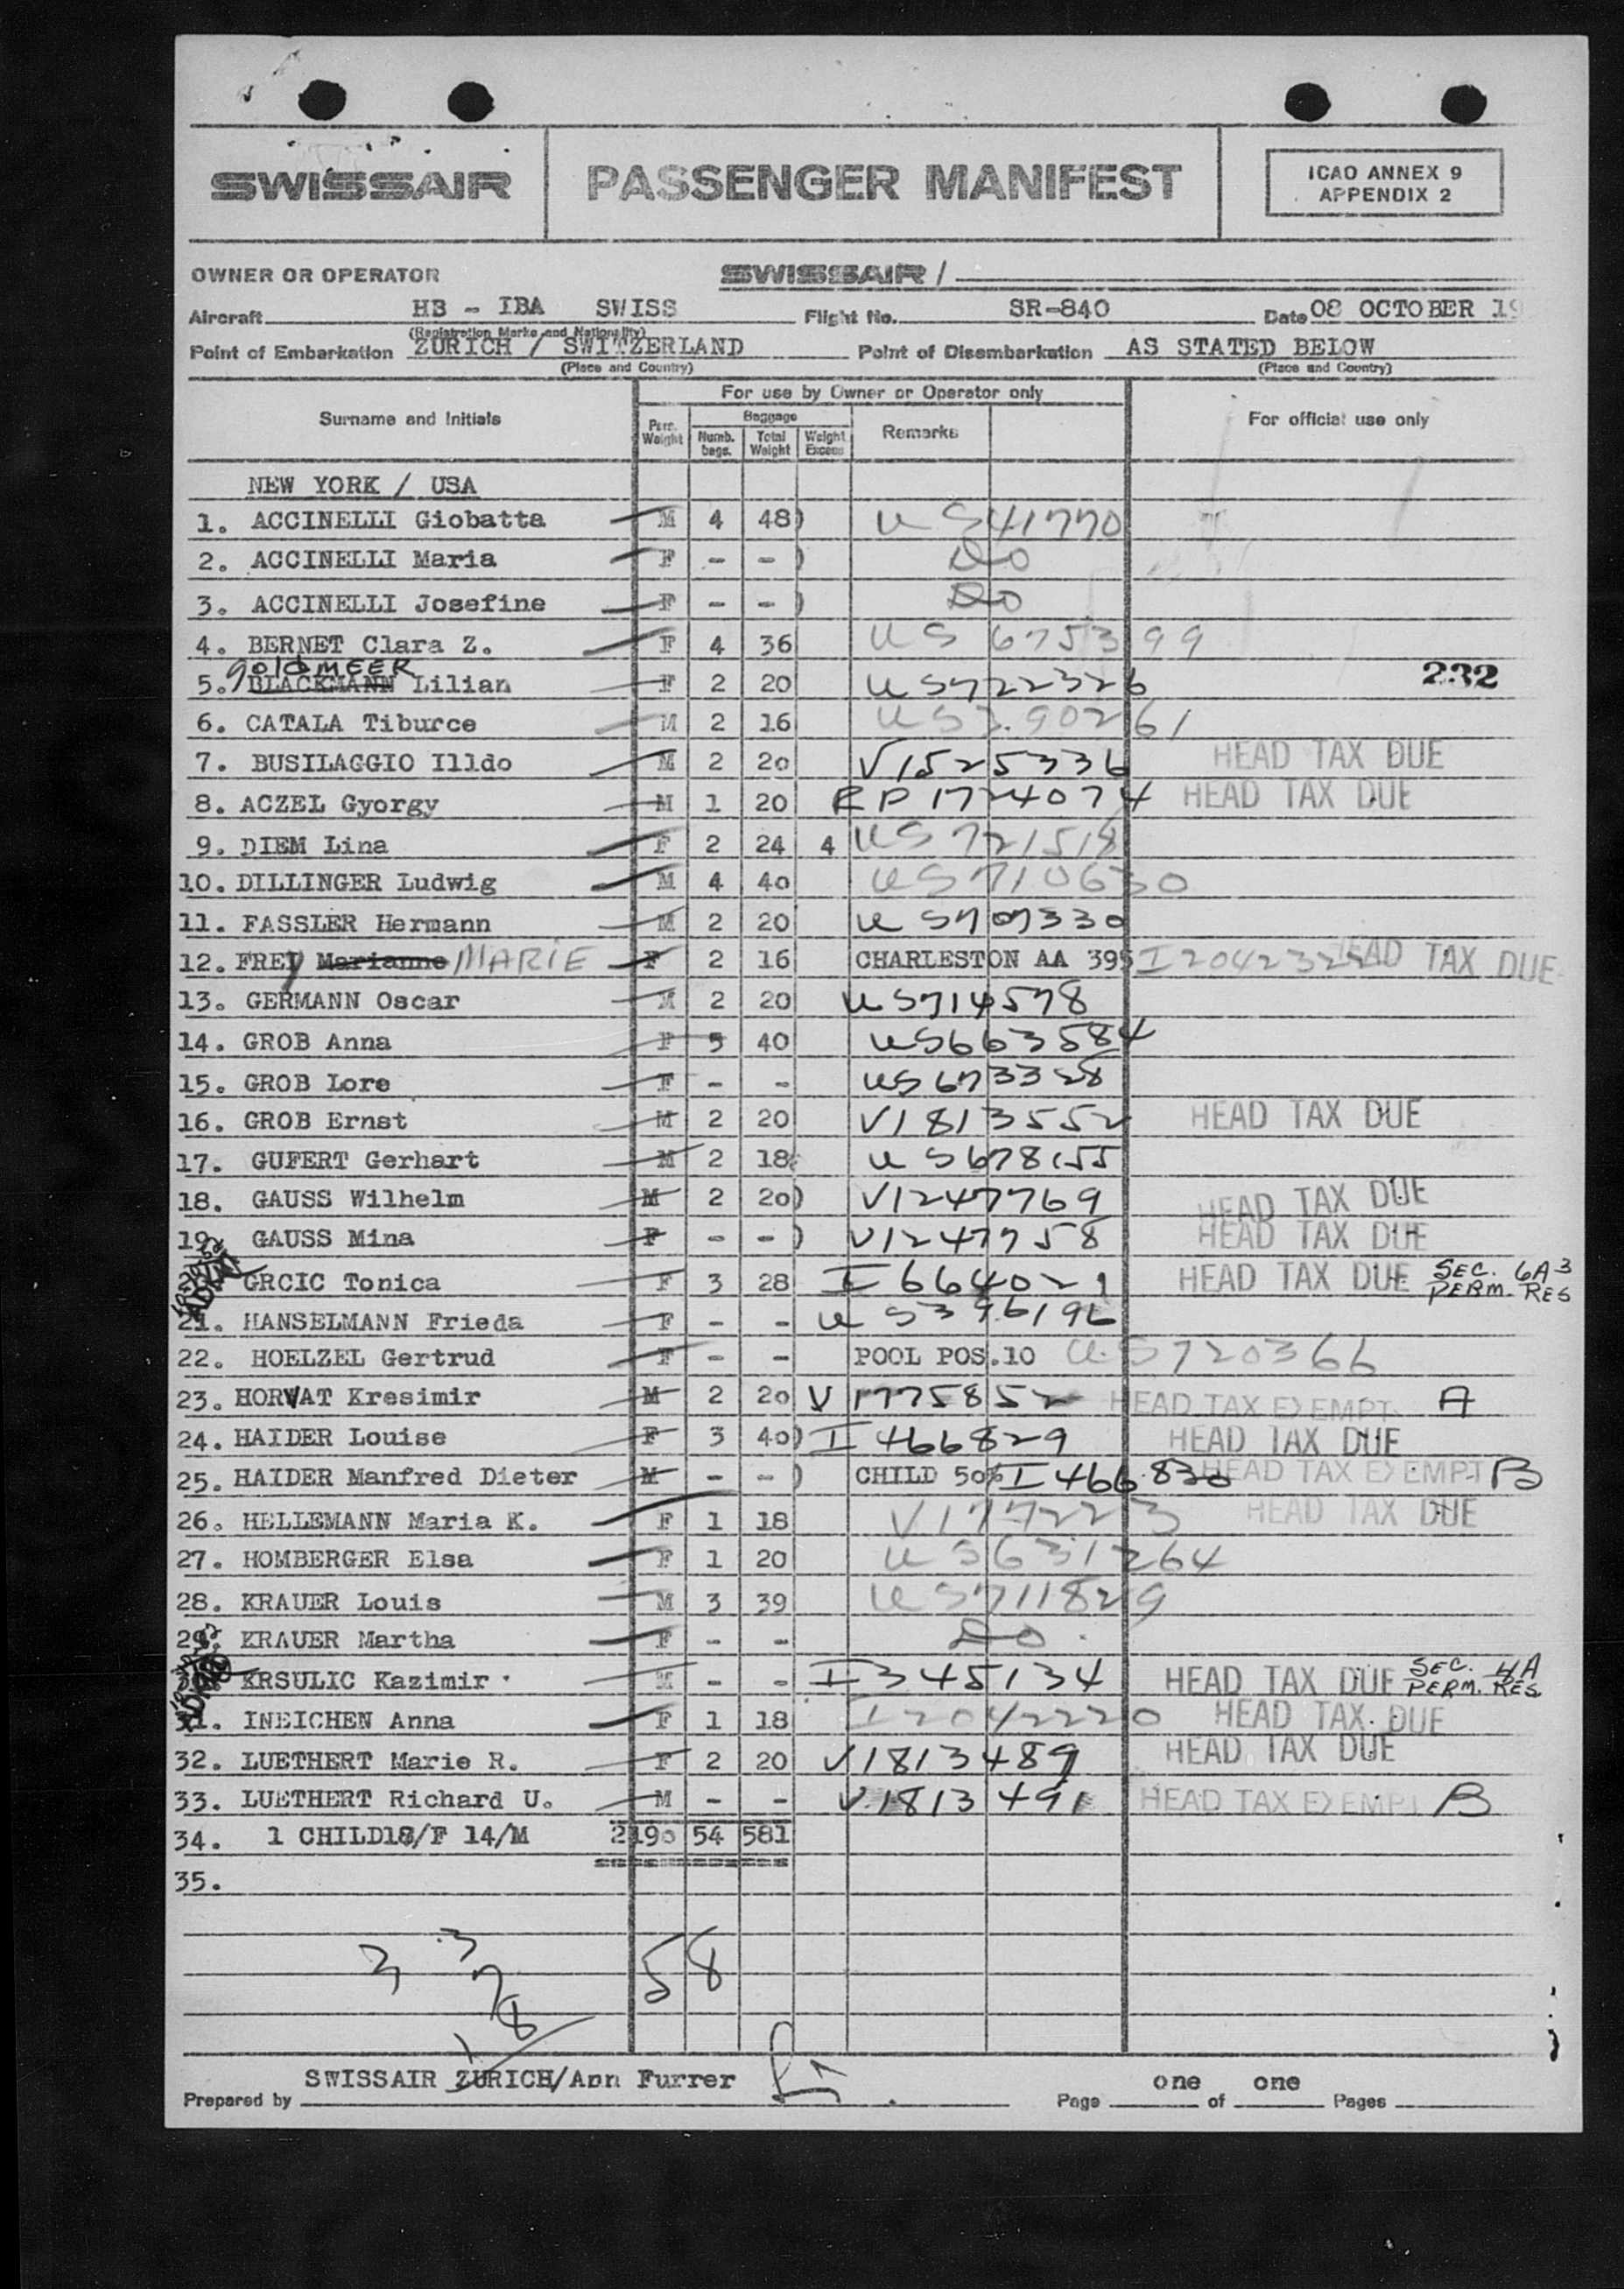 SWISSAIR PASSENGER MANIFEST ICAO ANNEX 9
APPENDIX 2
OWNER OR OPERATOR SWISSAIR /
Aircraft HB - IBA SWISS Flight No. SR-840 Date 08 OCTOBER 19
(Registration Marks and Nationality)
Point of Embarkation ZURICH / SWITZERLAND Point of Disembarkation AS STATED BELOW
(Place and Country) (Place and Country)
For use by Owner or Operator only
Surname and Initials Pers. Weight Baggage Remarks For official use only
Numb. bags. Total Weight Weight Excess
NEW YORK / USA
1. ACCINELLI Giobatta M 4 48) US 41770
2. ACCINELLI Maria F - - ) Do
3. ACCINELLI Josefine F - - ) Do
4. BERNET Clara Z. F 4 36 US 675399
goldMEER
5. BLACKMANN Lilian F 2 20 US722326 232
6. CATALA Tiburce M 2 16 US 390261
7. BUSILAGGIO Illdo M 2 20 V1525336 HEAD TAX DUE
8. ACZEL Gyorgy M 1 20 RP1724074 HEAD TAX DUE
9. DIEM Lina F 2 24 4 US 721518
10. DILLINGER Ludwig M 4 40 US710630
11. FASSLER Hermann M 2 20 US707330
12. FREY Marianne MARIE F 2 16 CHARLESTON AA 395 I2042322 HEAD TAX DUE
13. GERMANN Oscar M 2 20 US714578
14. GROB Anna F 5 40 US663584
15. GROB Lore F - - US673328
16. GROB Ernst M 2 20 V1813552 HEAD TAX DUE
17. GUFERT Gerhart M 2 18 US678155
18. GAUSS Wilhelm M 2 20) V1247769 HEAD TAX DUE
19. GAUSS Mina F - - ) V1247758 HEAD TAX DUE
GRCIC Tonica F 3 28 I 664021 HEAD TAX DUE SEC. 6A3
PERM. RES
21. HANSELMANN Frieda F - - US396196
22. HOELZEL Gertrud F - - POOL POS.10 US720366
23. HORVAT Kresimir M 2 20 V 1775852 HEAD TAX EXEMPT A
24. HAIDER Louise F 3 40) I 466829 HEAD TAX DUE
25. HAIDER Manfred Dieter M - - ) CHILD 50% I 466830 HEAD TAX EXEMPT B
26. HELLEMANN Maria K. F 1 18 V177223 HEAD TAX DUE
27. HOMBERGER Elsa F 1 20 US631264
28. KRAUER Louis M 3 39 US711829
29. KRAUER Martha F - - Do
KRSULIC Kazimir M - - I 345134 HEAD TAX DUE SEC. 4A
PERM. RES
31. INEICHEN Anna F 1 18 I 2042220 HEAD TAX DUE
32. LUETHERT Marie R. F 2 20 V1813489 HEAD TAX DUE
33. LUETHERT Richard U. M - - V1813491 HEAD TAX EXEMPT B
34. 1 CHILD18/F 14/M 2190 54 581
35.
3 3 58
7
18
SWISSAIR ZURICH/Ann Furrer
Prepared by Page one of one Pages